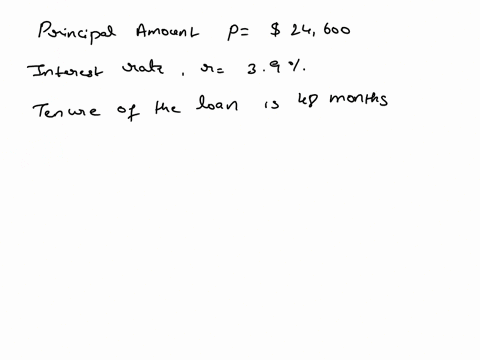 Principal Amount P= $ 24,600
Interest rate, r= 3.9%.
Tenure of the loan is 48 months